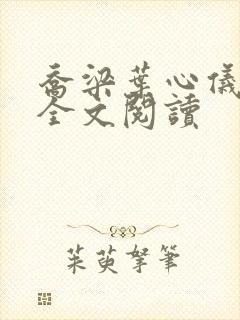 喬梁葉心儀
全文閱讀
茱萸拏筆